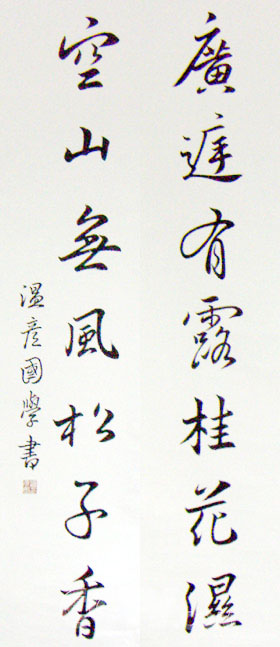 廣遲有露桂花濕
空山無風松子香
溫彥國學書